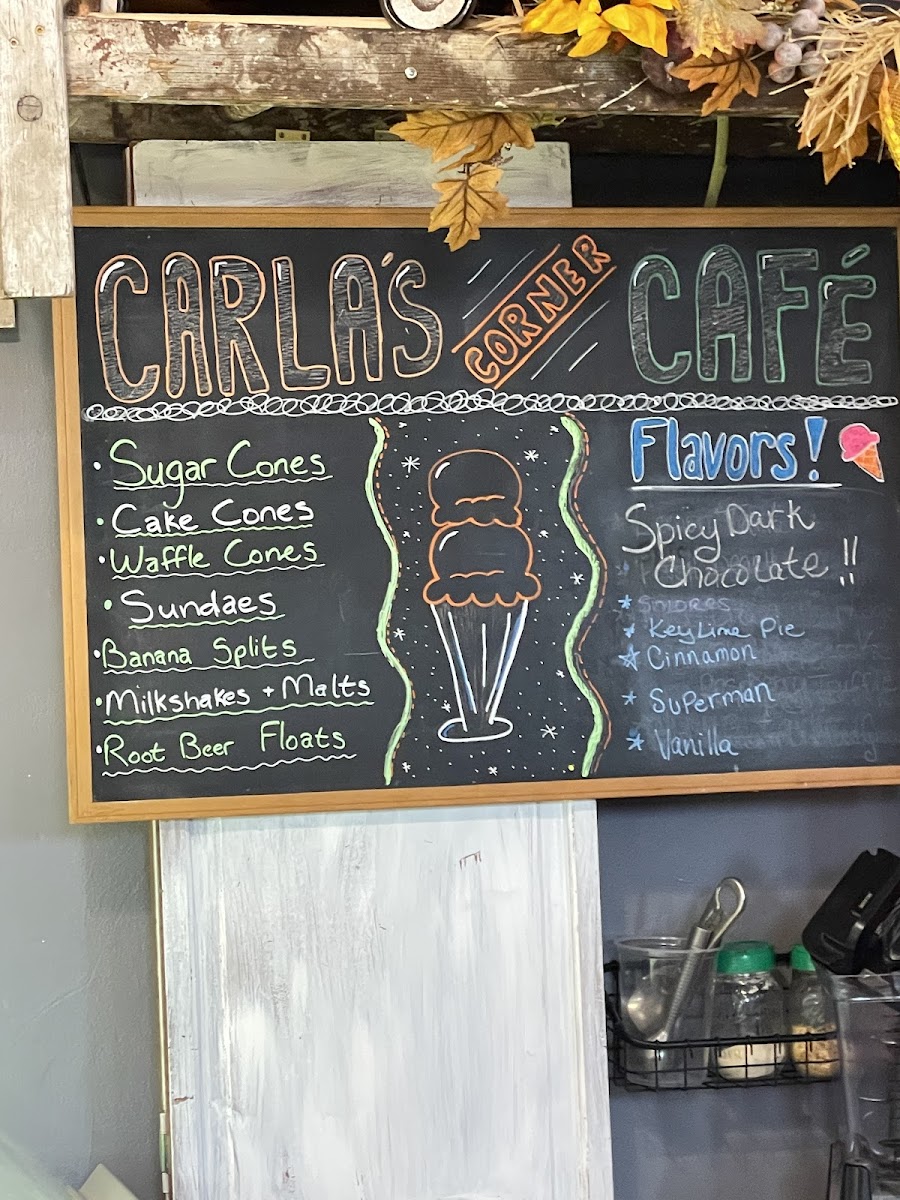 CARLA'S CORNER CAFÉ
• Sugar Cones
• Cake Cones
• Waffle Cones
• Sundaes
• Banana Splits
• Milkshakes + Malts
• Root Beer Floats
Flavors!
Spicy Dark
Chocolate!!
* Smores
* Key Lime Pie
* Cinnamon
* Superman
* Vanilla